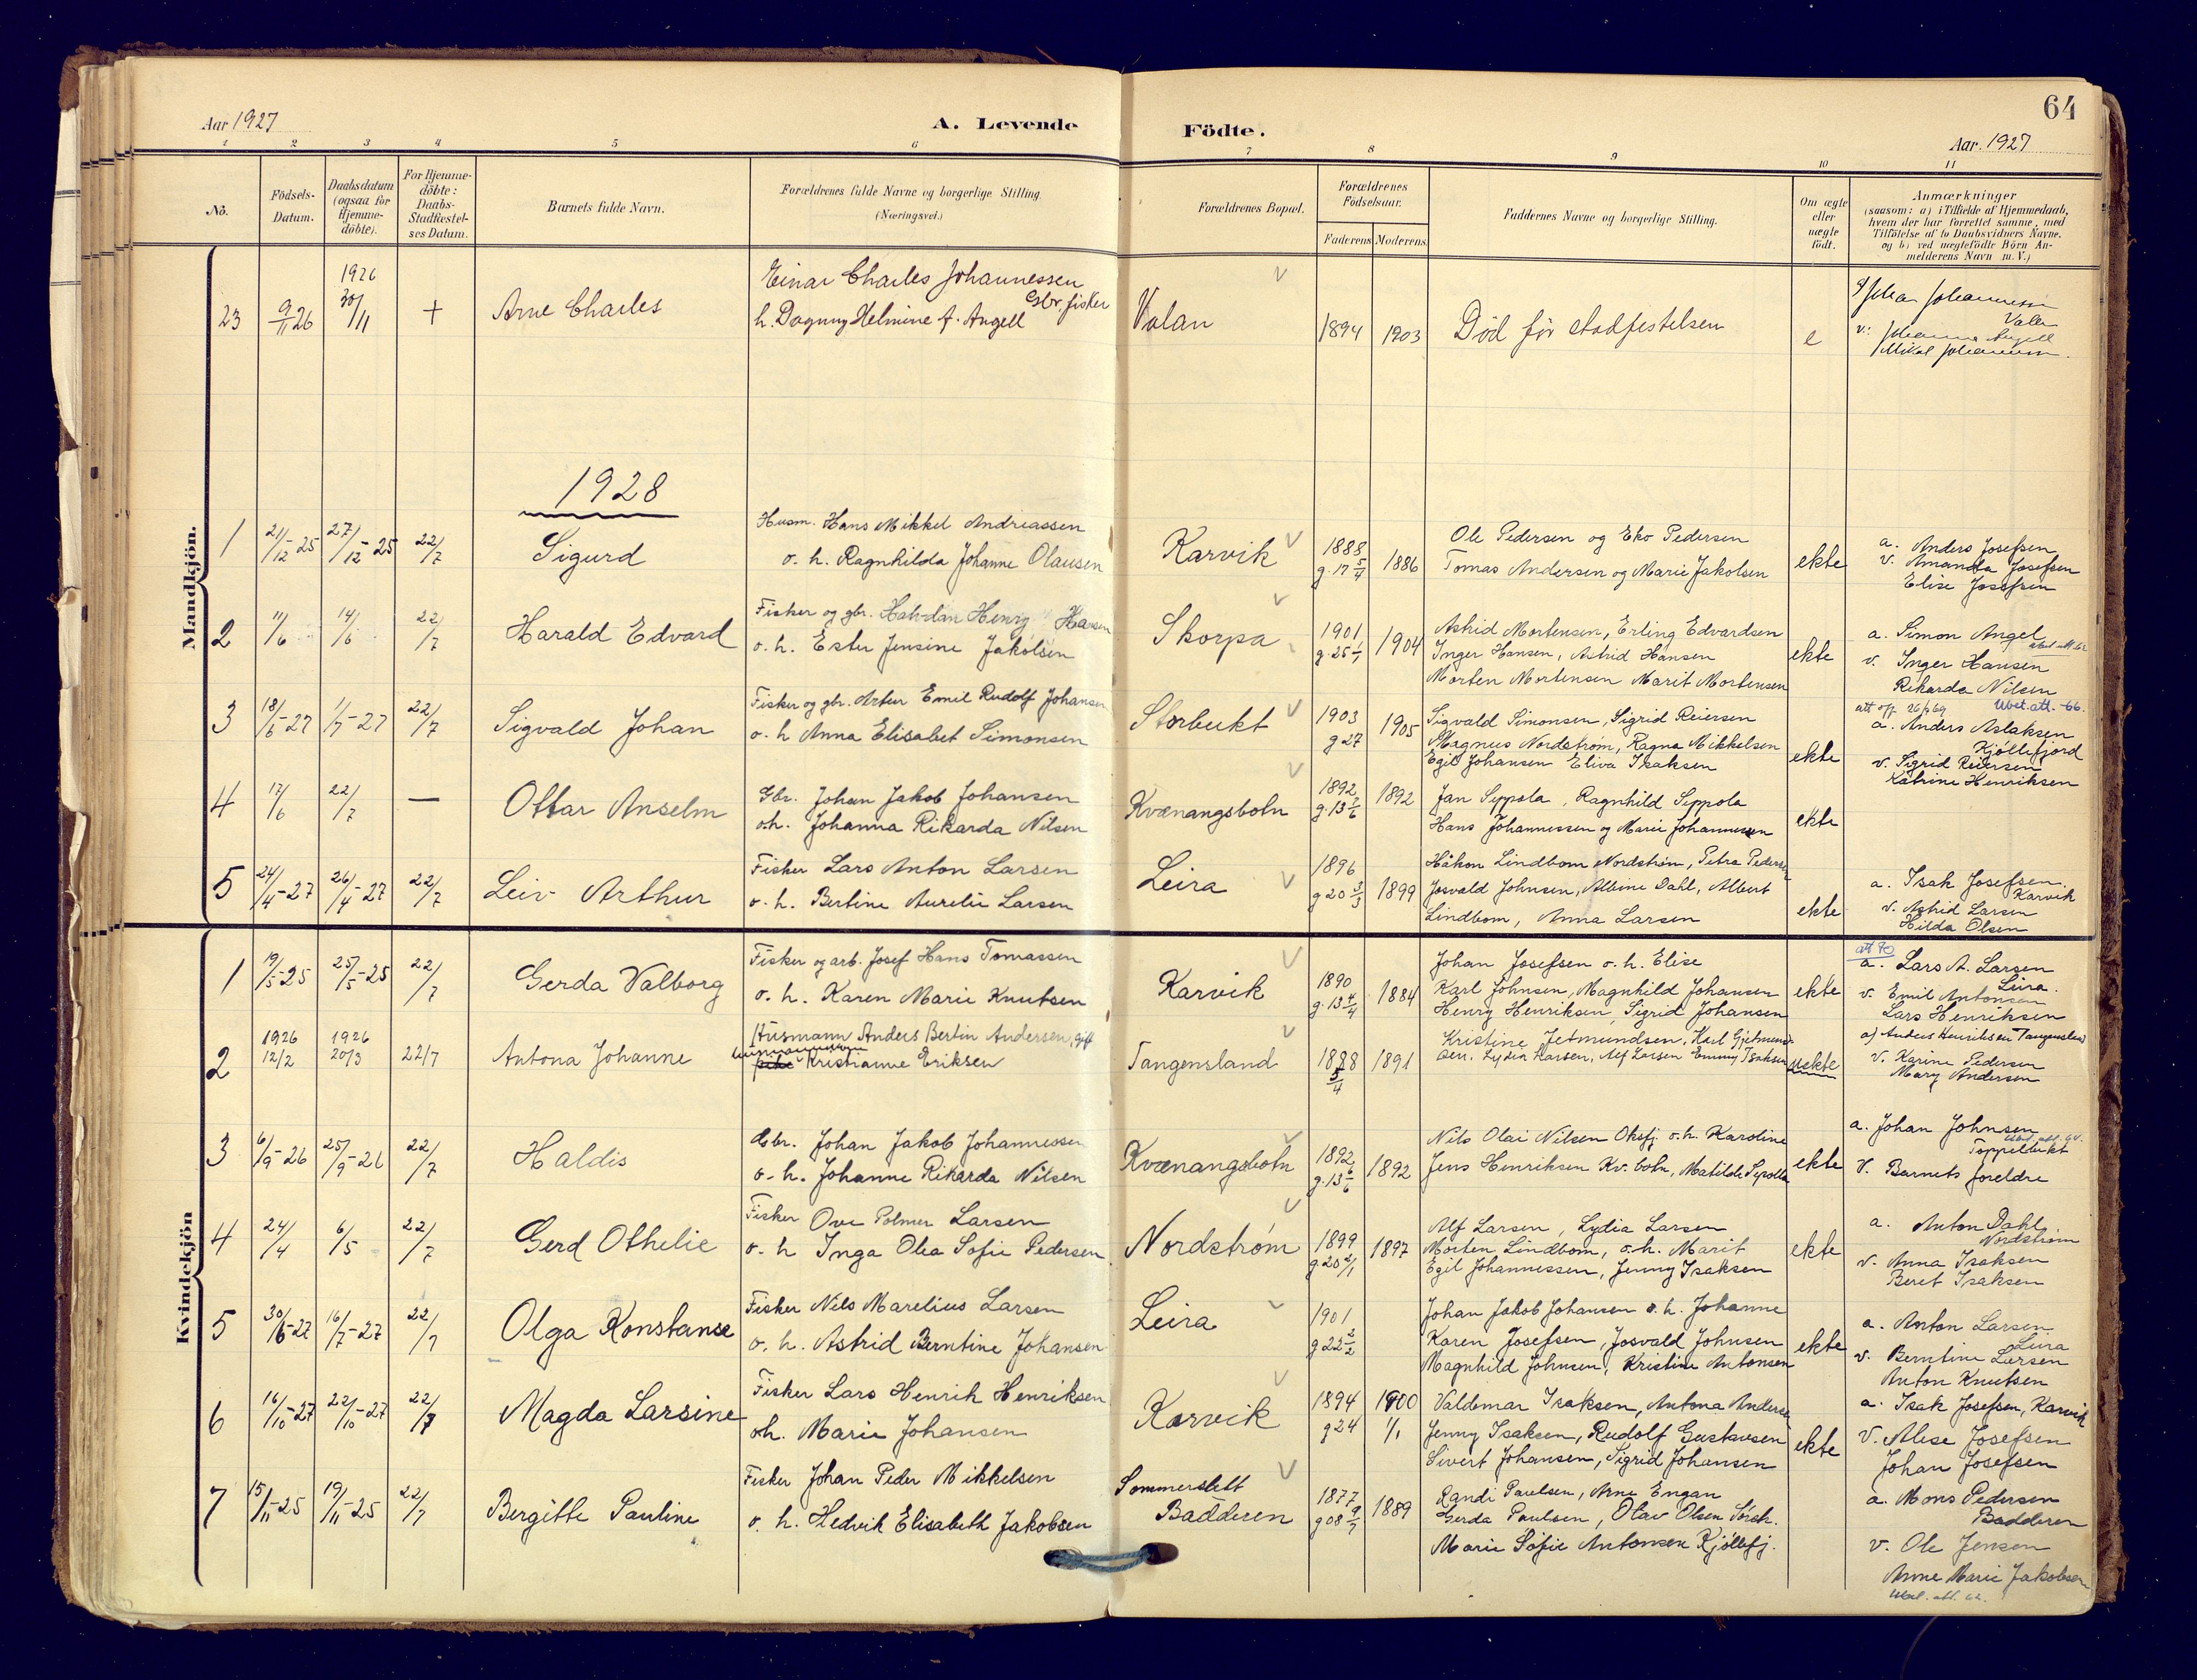 64
Aar 1927
A. Levende
Födte.
Aar. 1927
1 2 3 4 5 6 7 8 9 10 11
Nô.
Födsels-
Datum.
Daabsdatum
(ogsaa for
Hjemme-
döbte).
For Hjemme-
döbte:
Daabs-
Stadfæstel-
ses Datum.
Barnets fulde Navn.
Forældrenes fulde Navne og borgerlige Stilling.
(Næringsvei.)
Forældrenes Bopæl.
Forældrenes
Födselsaar.
Faderens Moderens
Faddernes Navne og borgerlige Stilling.
Om ægte
eller
uægte
födt.
Anmærkninger
(saasom: a) i Tilfælde af Hjemmedaab,
hvem der har forrettet samme, med
Tilföielse af to Daabsvidners Navne.
og b) ved uægtefödte Börn An-
melderens Navn m. V.)
Mandkjön.
23 9/11 26
1926
30/11
+
Arne Charles
Einar Charles Johannessen
Gbr. fisker
h. Dagny Helmine f. Angell
Valan
1894 1903
Død før stadfestelsen
e
Johan Johannessen
Valan
v: Johanna Angell
Mikal Johannessen.
1928
1 21/12-25 27/12-25 22/7
Sigurd
Husm. Hans Mikkel Andreassen
o. h. Ragnhilda Johanne Olausen
Karvik
1888
g. 17 5/4
1886
Ole Pedersen og Eko Pedersen
Tomas Andersen og Marie Jakolsen
ekte
a. Anders Josefsen
v. Amanda Josefsen
Elise Josefsen
2 11/6 14/6 22/7
Harald Edvard
Fisker og gbr. Halvdan Henry Hansen
o. h. Ester Jensine Jakolsen
Skorpa
1901
g. 25 1/1
1904
Astrid Mortensen, Erling Edvardsen
Inger Hansen, Astrid Hansen
Morten Mortensen Marit Mortensen
ekte
a. Simon Angel
v. Inger Hansen
Rikarda Nilsen
3 18/6-27 1/7-27 22/7
Sigvald Johan
Fisker og gbr. Artur Emil Rudolf Johansen
o. h Anna Elisabet Simonsen
Storbukt
1903
g 27
1905
Sigvald Simonsen, Sigrid Reiersen
Magnus Nordstrøm, Ragna Mikkelsen
Egil Johansen Eliva Isaksen
ekte
Ubet. att. -66.
a. Anders Aslaksen
Kjøllefjord
v. Sigrid Reiersen
Katrine Henriksen
4 17/6 22/7 —
Ottar Anselm
Gbr. Johan Jakob Johansen
o.h. Johanna Rikarda Nilsen
Kvænangsbotn
1892
g. 13 7/6
1892
Jan Seppola, Ragnhild Seppola
Hans Johannessen og Marie Johannessen
ekte
5 24/4-27 26/4-27 22/7
Leiv Arthur
Fisker Lars Anton Larsen
o. h. Bertine Aurelie Larsen
Leira
1896
g 20 3/3
1899
Håkon Lindbom Nordstrøm, Petra Pedersen
Josvald Johnsen, Albine Dahl, Albert
Lindbom, Anna Larsen
ekte
a. Isak Josefsen.
Karvik
v. Astrid Larsen
Hilda Olsen
Kvindekjön
1 19/5-25 25/5-25 22/7
Gerda Valborg
Fisker og arb. Josef Hans Tomassen
o. h. Karen Marie Knutsen
Karvik
1890
g. 13 4/4
1884
Johan Josefsen o. h. Elise
Karl Johnsen, Magnhild Johansen
Henry Henriksen, Sigrid Johansen
ekte
att 70
a. Lars A. Larsen
Leira.
v. Emil Antonsen
Lars Henriksen
2
1926
12/2
1926
20/3
22/7
Antona Johanne
Husmann Anders Bertin Andersen, gift
Kristianne Eriksen
Tangensland
1888
5/4
1891
Kristine Jetmundsen, Karl Gjetmund-
sen. Lydia Larsen, Alf Larsen Emmy Isaksen
uekte
a) Anders Henriksen Tangensland
v. Karine Pedersen
Mary Andersen
3 6/9-26 25/9-26 22/7
Haldis
Gbr. Johan Jakob Johannessen
o. h. Johanne Rikarda Nilsen
Kvænangsbotn
1892
g. 13 6/6
1892
Nils Olai Nilsen Oksfj. o. h. Karoline
Jens Henriksen Kv. botn, Matilde Sepolla
ekte
a. Johan Johnsen
Toppelbukt
V. Barnets foreldre
4 24/4 6/5 22/7
Gerd Othelie
Fisker Ove Polmer Larsen
o. h Inga Olea Sofie Pedersen
Nordstrøm
1899
g 20 2/1
1897
Alf Larsen, Lydia Larsen
Morten Lindbom, o. h. Marit
Egil Johannessen, Jenny Isaksen
ekte
a. Anton Dahl.
Nordstrøm
v. Anna Isaksen
Beret Isaksen
5 30/6-27 16/7-27 22/7
Olga Konstanse
Fisker Nils Marelius Larsen
o. h. Astrid Berntine Johansen
Leira
1901
g 22 2/2
Johan Jakob Johansen o. h. Johanne
Karen Josefsen, Josvald Johnsen
Magnhild Johnsen, Kristine Antonsen
ekte
a. Anton Larsen
Leira
v. Berntine Larsen
Anton Knutsen
6 16/10-27 22/10-27 22/7
Magda Larsine
Fisker Lars Henrik Henriksen
oh. Marie Johansen
Karvik
1894
g 24
1900
1/1
Valdemar Isaksen, Antona Andersen
Jenny Isaksen, Rudolf Gustavsen
Sivert Johansen, Sigrid Johansen
ekte
a. Isak Josefsen, Karvik
V. Alise Josefsen
Johan Josefsen
7 15/11-25 19/11-25 22/7
Bergitte Pauline
Fisker Johan Peder Mikkelsen
o. h. Hedvik Elisabeth Jakobsen
Sommerslett
Badderen
1877
g 08 9/7
1889
Randi Paulsen, Arne Engan
Gerda Paulsen, Olav Olsen
Marie Sofie Antonsen Kjøllefj.
a. Mons Pedersen
Badderen
v. Ole Jensen
Anne Marie Jakobsen